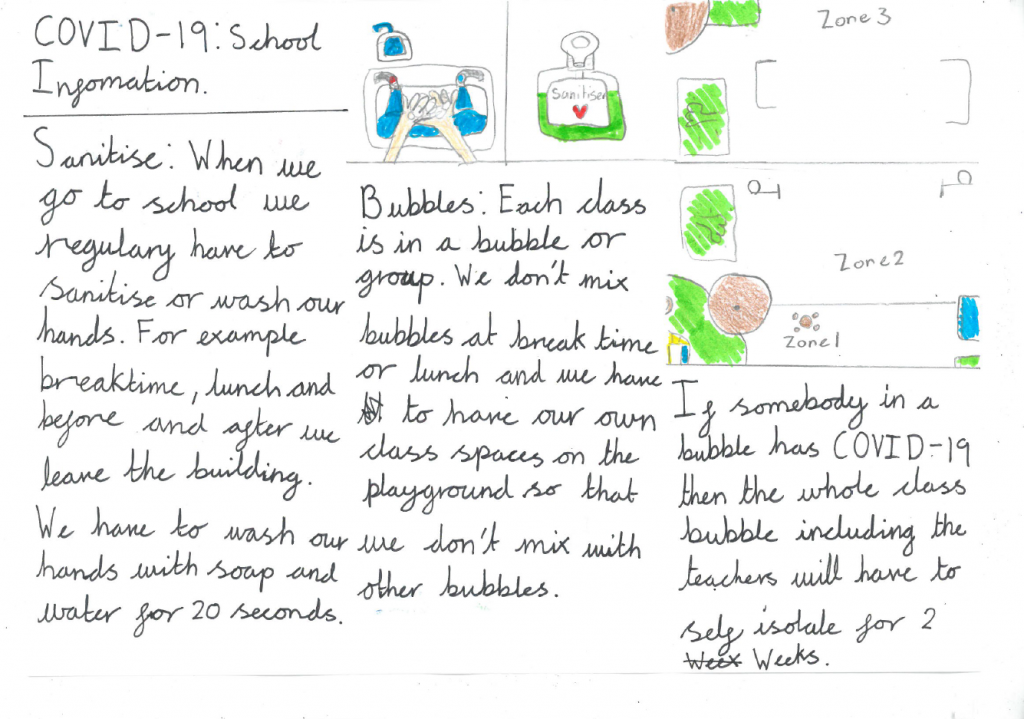 COVID-19: School
Infomation.
Sanitise: When we
go to school we
regulary have to
sanitise or wash our
hands. For example
breaktime, lunch and
before and after we
leave the building.
We have to wash our
hands with soap and
water for 20 seconds.
Sanitiser
Bubbles: Each class
is in a bubble or
group. We don't mix
bubbles at break time
or lunch and we have
to have our own
class spaces on the
playground so that
we don't mix with
other bubbles.
Zone 3
Zone 2
Zone 1
If somebody in a
bubble has COVID-19
then the whole class
bubble including the
teachers will have to
self isolate for 2
Weex Weeks.